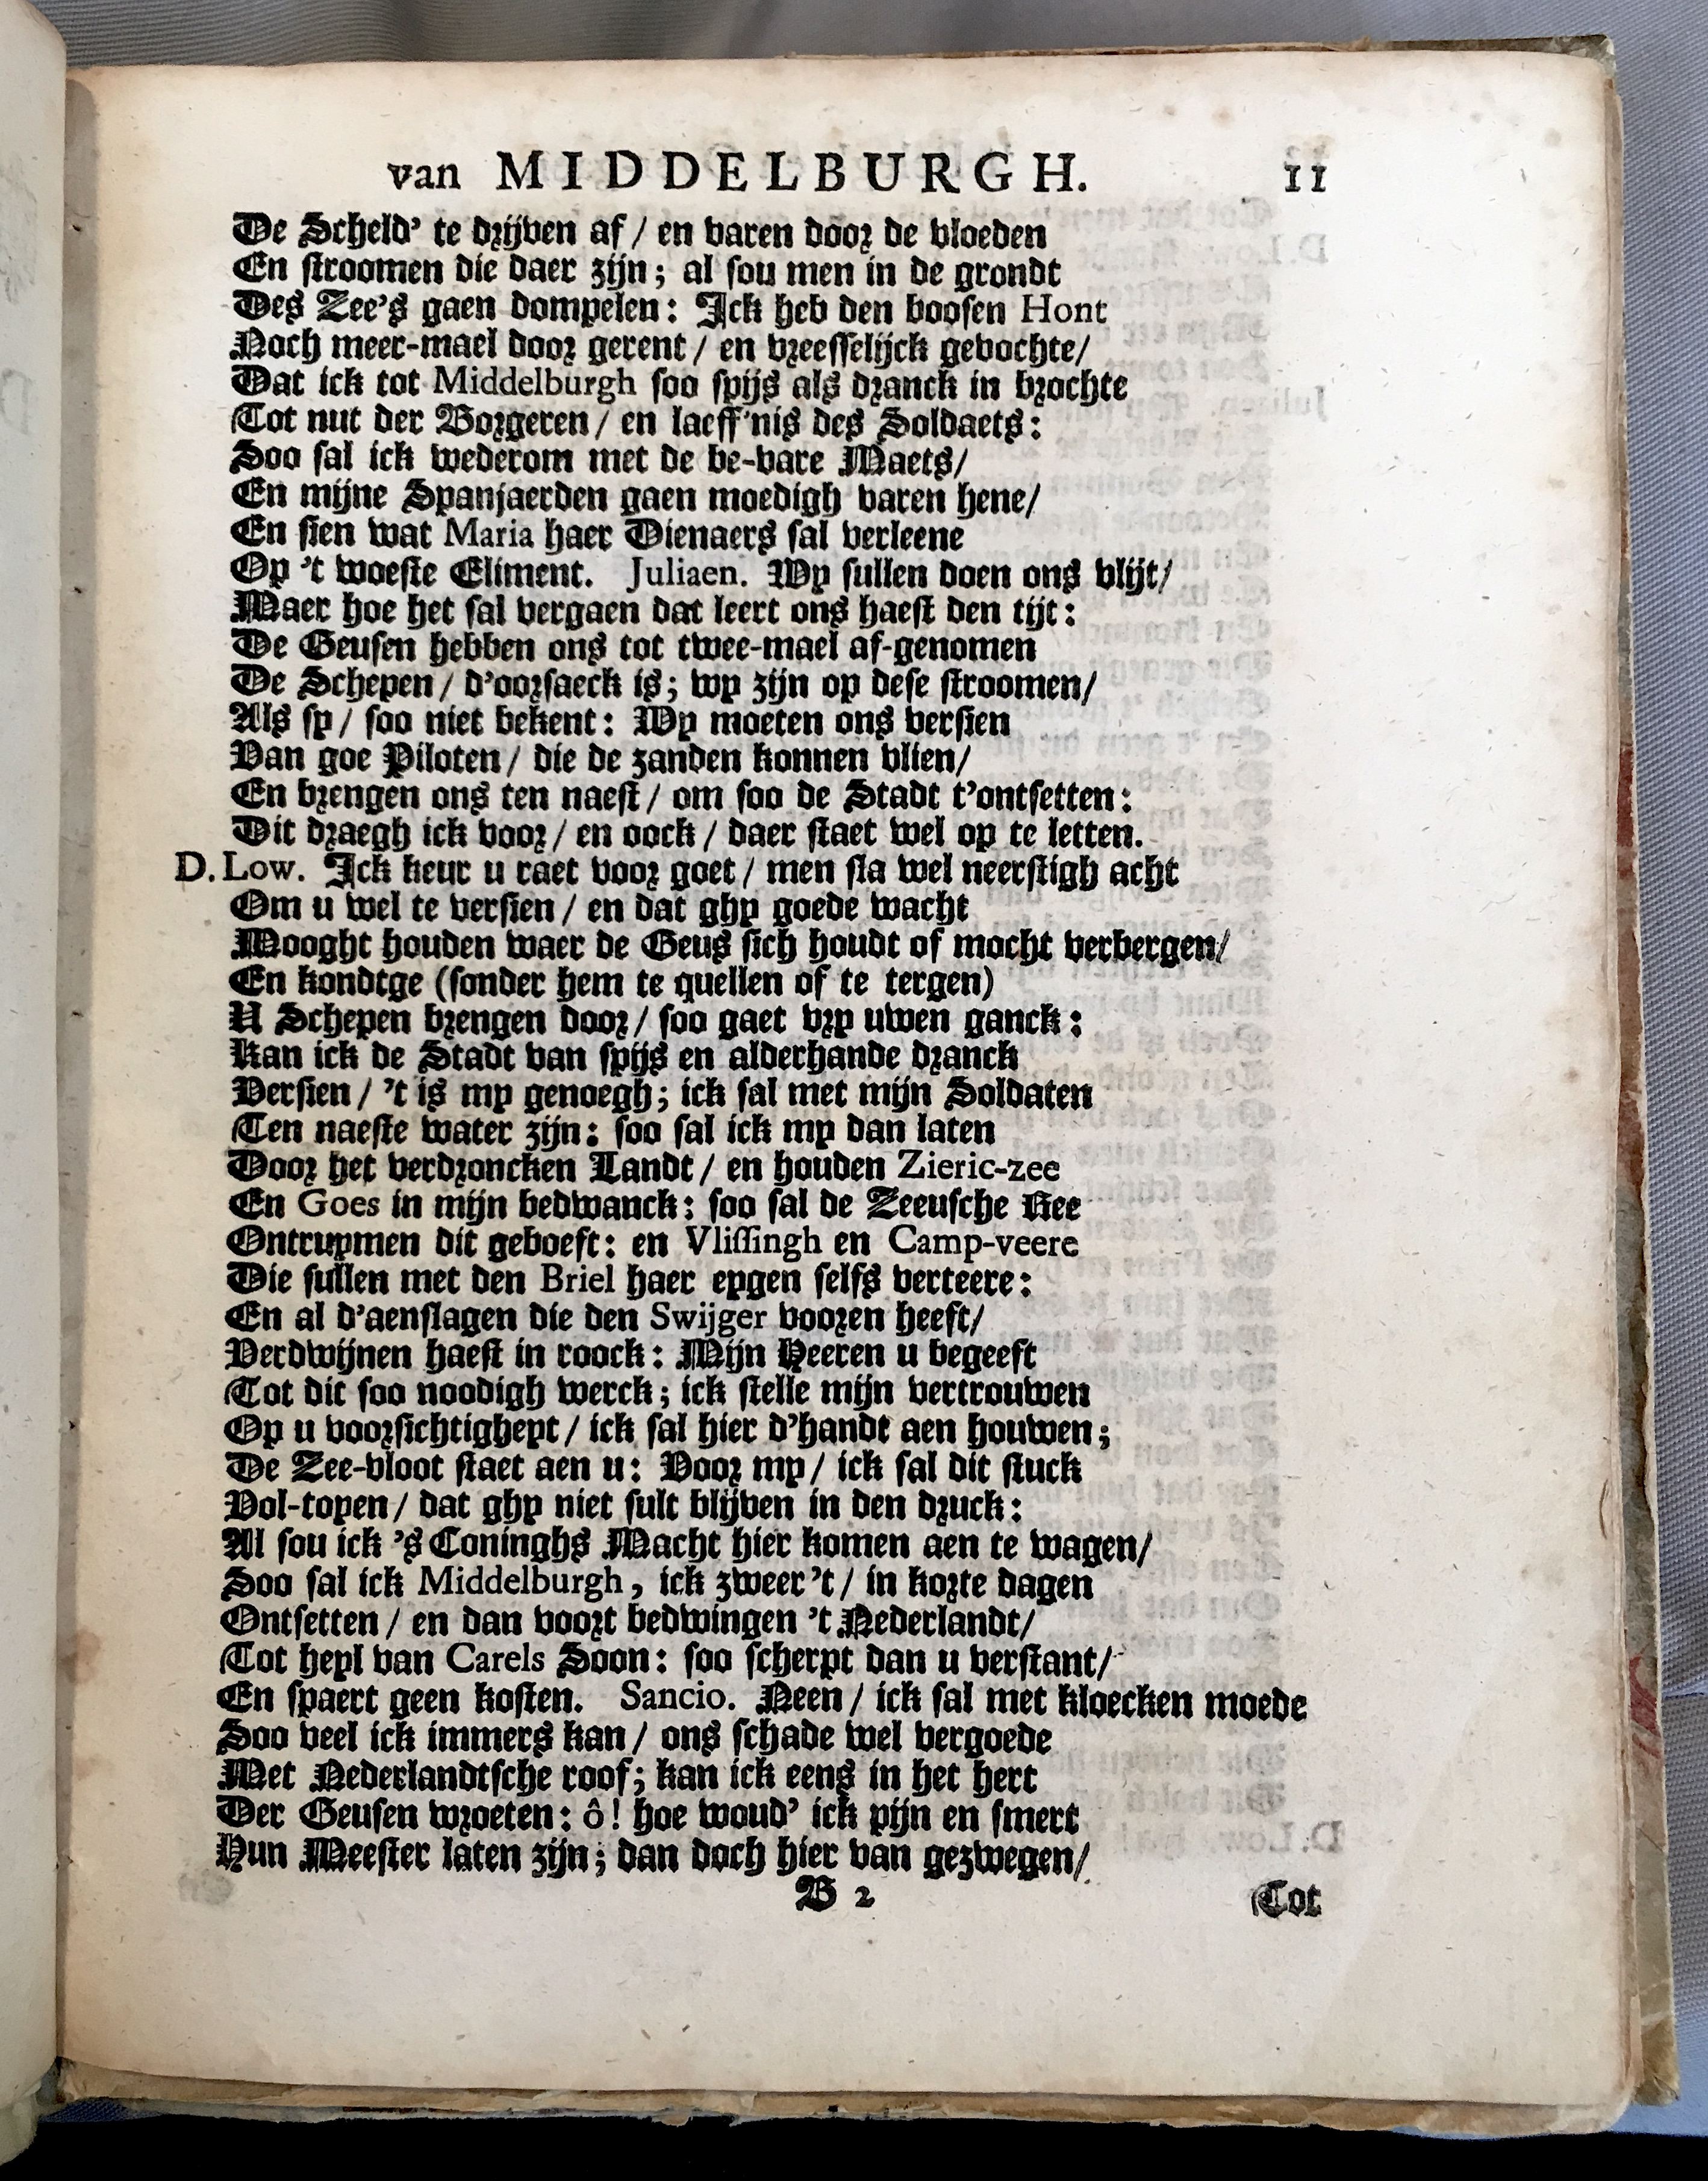 van MIDDELBURGH. 11
De Scheld' te drijven af / en varen door de vloeden
En stroomen die daer zijn; al sou men in de grondt
Des Zee's gaen dompelen: Ick heb den boosen Hont
Noch meer-mael door gerent / en vreesselijck gevochte/
Dat ick tot Middelburgh soo spijs als dranck in brochte
Tot nut der Borgeren / en laeff'nis des Soldaets:
Soo sal ick wederom met de be-vare Maets/
En mijne Spanjaerden gaen moedigh varen hene/
En sien wat Maria haer Dienaers sal verleene
Op 't woeste Eliment. Juliaen. Wy sullen doen ons vlijt/
Maer hoe het sal vergaen dat leert ons haest den tijt:
De Geusen hebben ons tot twee-mael af-genomen
De Schepen / d'oorsaeck is; wy zijn op dese stroomen/
Als sy / soo niet bekent: Wy moeten ons versien
Van goe Piloten / die de zanden konnen vlien/
En brengen ons ten naest / om soo de Stadt t'ontsetten:
Dit draegh ick voor / en oock / daer staet wel op te letten.
D. Low. Ick keur u raet voor goet / men sla wel neerstigh acht
Om u wel te versien / en dat ghy goede wacht
Mooght houden waer de Geus sich houdt of mocht verbergen/
En kondtge (sonder hem te quellen of te tergen)
U Schepen brengen door / soo gaet vry uwen ganck:
Kan ick de Stadt van spijs en alderhande dranck
Versien / 't is my genoegh; ick sal met mijn Soldaten
Ten naeste water zijn: soo sal ick my dan laten
Door het verdroncken Landt / en houden Zieric-zee
En Goes in mijn bedwanck: soo sal de Zeeusche Ree
Ontruymen dit geboeft: en Vlissingh en Camp-veere
Die sullen met den Briel haer eygen selfs verteere:
En al d'aenslagen die den Swijger vooren heeft/
Verdwijnen haest in roock: Mijn Heeren u begeeft
Tot dit soo noodigh werck; ick stelle mijn vertrouwen
Op u voorsichtigheyt / ick sal hier d'handt aen houwen;
De Zee-vloot staet aen u: Voor my / ick sal dit stuck
Vol-toyen / dat ghy niet sult blijven in den druck:
Al sou ick 's Coninghs Macht hier komen aen te wagen/
Soo sal ick Middelburgh, ick zweer 't / in korte dagen
Ontsetten / en dan voort bedwingen 't Nederlandt/
Tot heyl van Carels Soon: soo scherpt dan u verstant/
En spaert geen kosten. Sancio. Neen / ick sal met kloecken moede
Soo veel ick immers kan / ons schade wel vergoede
Met Nederlandtsche roof; kan ick eens in het hert
Der Geusen wroeten: ô! hoe woud' ick pijn en smert
Hun Meester laten zijn; dan doch hier van gezwegen/
B 2 Tot